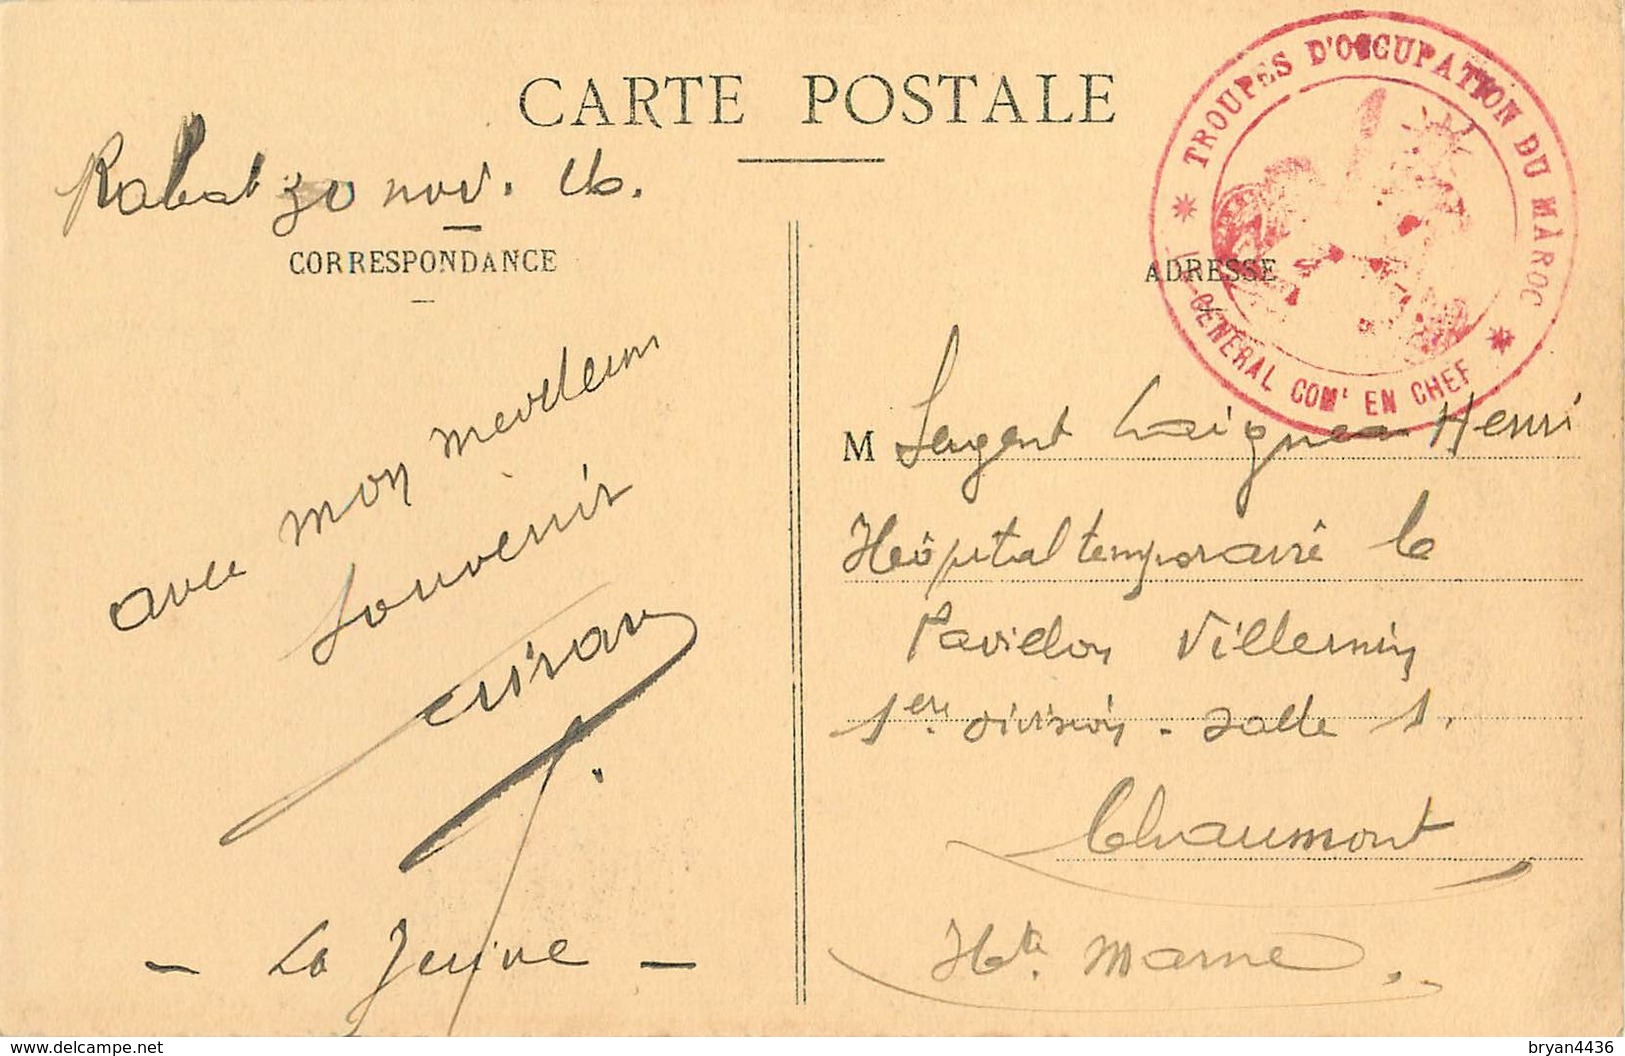 CARTE POSTALE
Rabat 30 nov. 16.
CORRESPONDANCE
avec mon meilleur
souvenir
- La Jeune -
TROUPES D'OCCUPATION DU MAROC
GÉNÉRAL COMᵗ EN CHEF
ADRESSE
M Sergent Henri
Hôpital temporaire 6
Pavillon Villemin
1ère division - salle 1.
Chaumont
Hte Marne.
www.delcampe.net
bryan4436